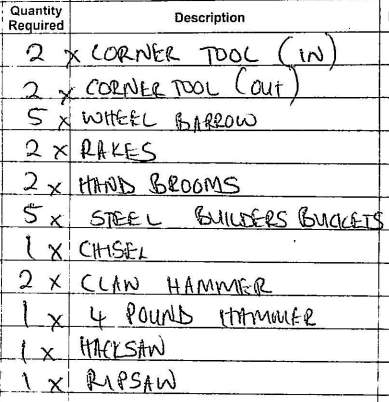 Quantity Required Description
2 x CORNER TOOL (IN)
2 x CORNER TOOL (OUt)
5 x WHEEL BARROW
2 x RAKES
2 x HAND BROOMS
5 x STEEL BUILDERS BUCKETS
1 x CHISEL
2 x CLAW HAMMER
1 x 4 POUND HAMMER
1 x HACKSAW
1 x RIPSAW